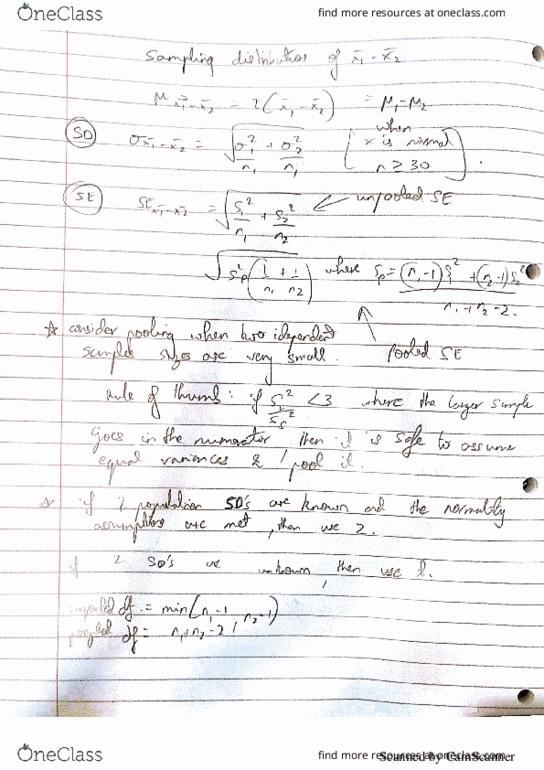 OneClass
find more resources at oneclass.com
Sampling distribution of x̄₁ - x̄₂
μ x̄₁-x̄₂ = (x̄₁ - x̄₂) = μ₁-μ₂
SD σx̄₁-x̄₂ = √(σ₁²/n₁ + σ₂²/n₁) [when x is normal n ≥ 30].
SE SE x̄₁-x̄₂ = √(S₁²/n₁ + S₂²/n₂) ← unpooled SE
√(S²p(1/n₁ + 1/n₂)) where Sp = (n₁-1)S₁² + (n₂-1)S₂² / n₁+n₂-2.
☆ consider pooling when two idependent
samples sizes are very small. pooled SE
rule of thumb: if S²/S² < 3 where the larger sample
goes in the numerator then it is safe to assume
equal variances & pool it.
☆ if 2 population SD's are known and the normality
assumptions are met, then use Z.
if 2 SD's are unknown, then use t.
unpooled df. = min(n₁-1, n₂-1)
pooled df = n₁+n₂-2
OneClass
find more resources at oneclass.com
Scanned by CamScanner